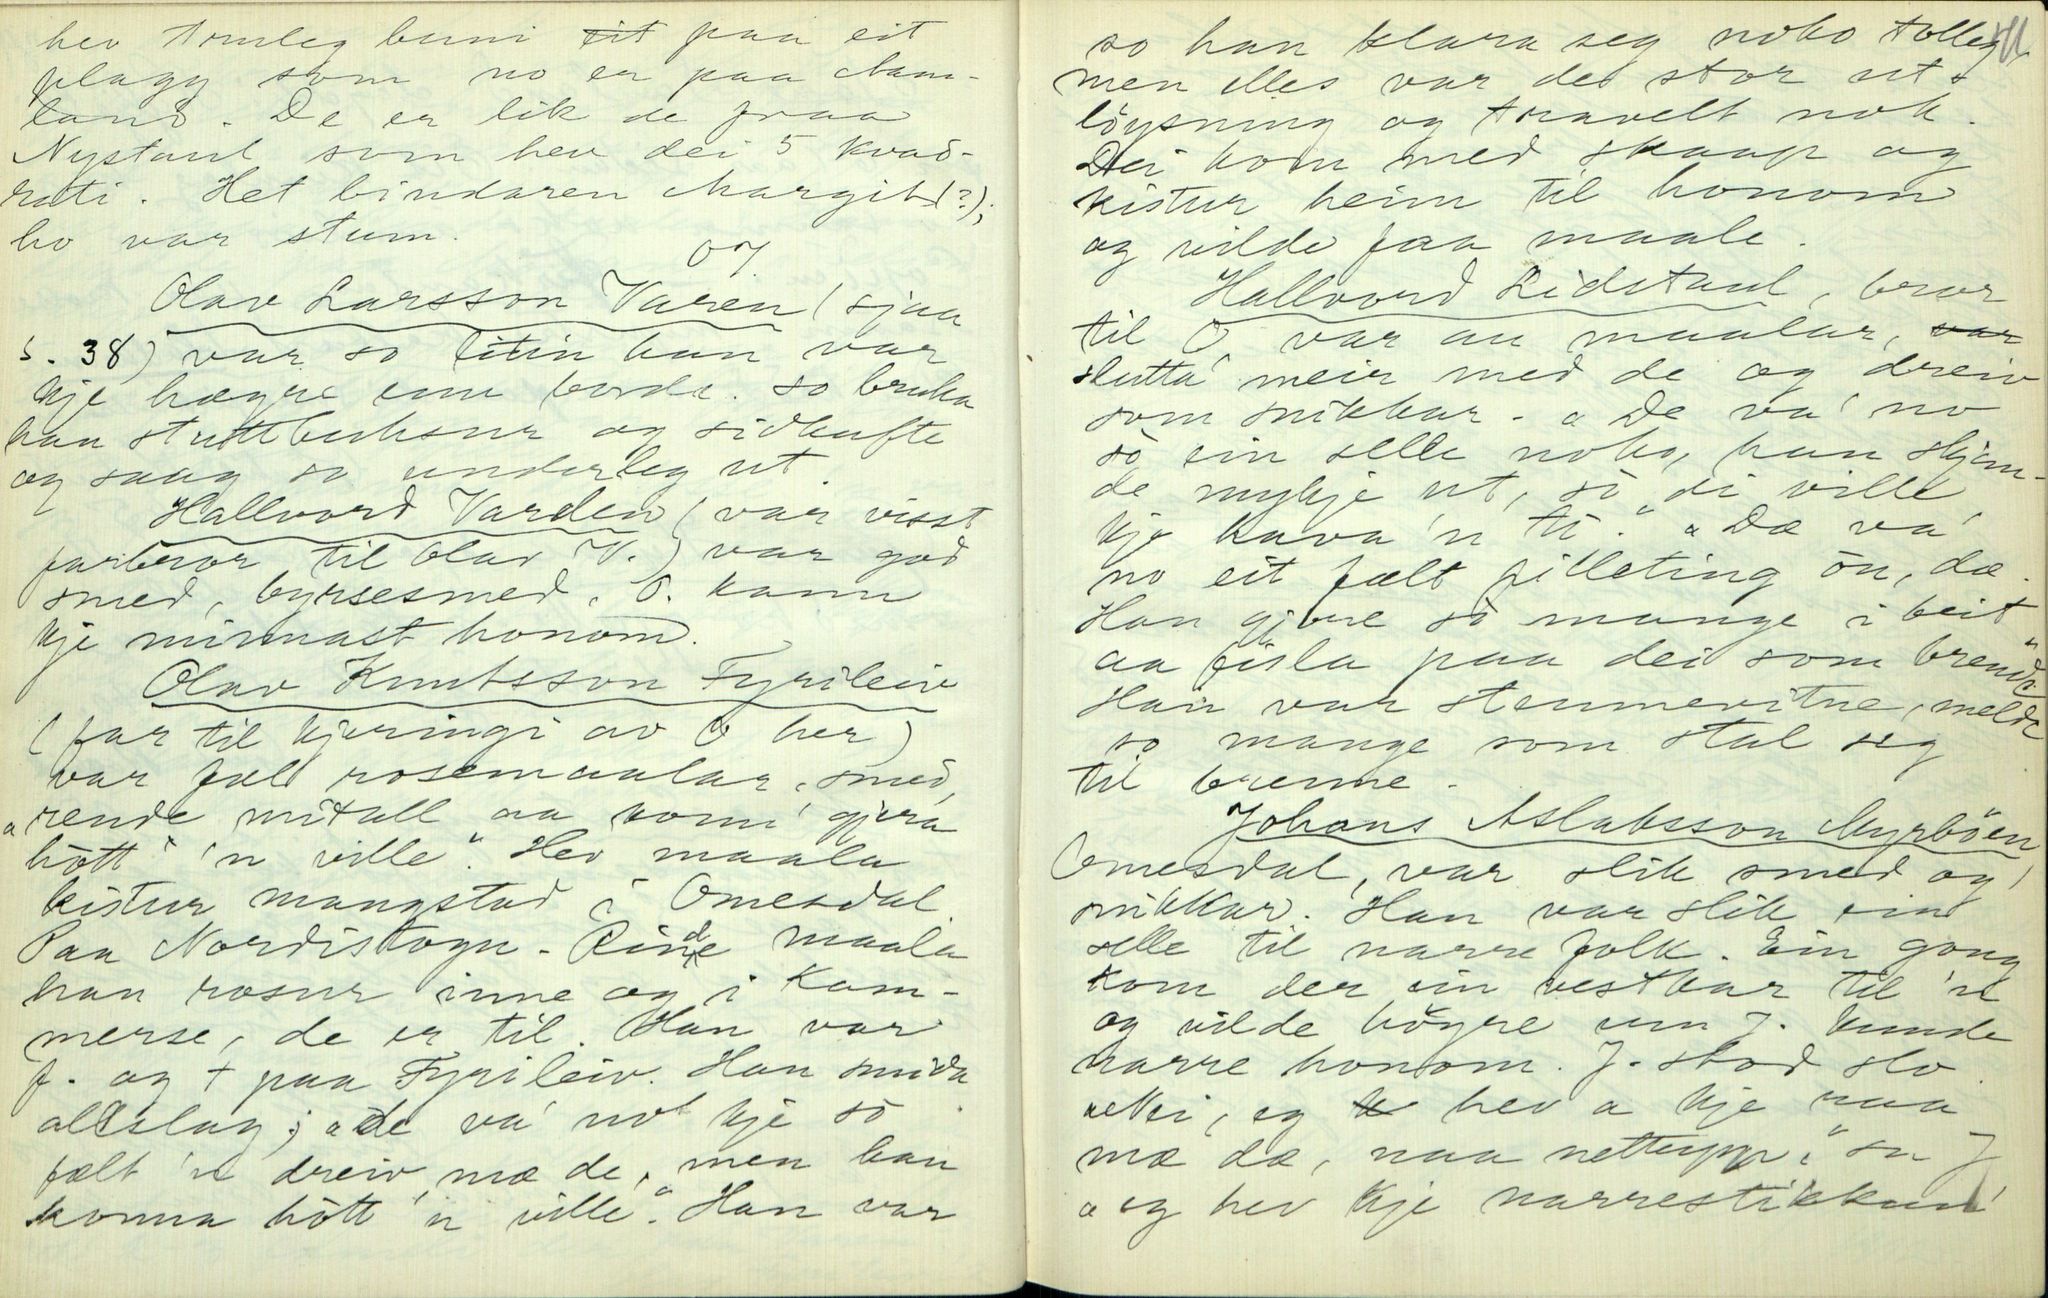 hev truleg buni eit paa eit
plagg som no er paa Nam-
land. De er lik de fraa
Nystaul som hev dei 5 kvad-
rati. Het bindaren Margit (?);
ho var stum.
07
Olav Larsson Varen (sjaa
s. 38) var so litin han var
kje høgre enn borde. So bruka
han stuttbuksur og sidkufte
og saag so underleg ut.
Hallvord Varden (var visst
farbror til Olav V.) var god
smed, byrsesmed. O. kann
kje minnast honom.
Olav Knutsson Fyrileiv
(far til kjeringi av O her)
var fæl rosemaalar, smed,
"rende mitall aa konn' gjera
hòtt 'n ville". Hev maala
kistur mangstad i Omesdal.
Paa Nordistogn - Rinde maala
han rosur inne og i kam-
merse, de er til. Han var
f. og + paa Fyrileiv. Han smida
allslag; "de va' no kje sò
fælt 'n dreiv mæ de, men han
konna hòtt 'n ville". Han var
so han klara seg noko tolleg
men elles var dei stor ut-
løysning og travelt nok.
Dei kom med skaap og
kistur heim til honom
og vilde faa maale.
Hallvord Lidstaul, bror
til O var au maalar, var
slutta meir med de og dreiv
som snikkar. "De va' no
sò ein selle noko, han skjem-
de mykje ut, sò di ville
kje hava 'n ti." "Dæ va'
no eit fælt pilleting òn, dæ.
Han gjore sò mange i beit
aa fisla paa dei som brende"
Han var stemnevitne, melde
so mange som stal seg
til brenne.
Johans Aslaksson Myrbøen,
Omesdal, var slik smed og
snikkar. Han var slik ein
selle til narre folk. Ein gong
kom der ein vestkar til 'n
og vilde høyre um J. kunde
narre honom. J. stod slo
ækki, eg hev a kje naa
mæ dæ, naa nettupp," sa J
"eg hev kje narrestikkun'